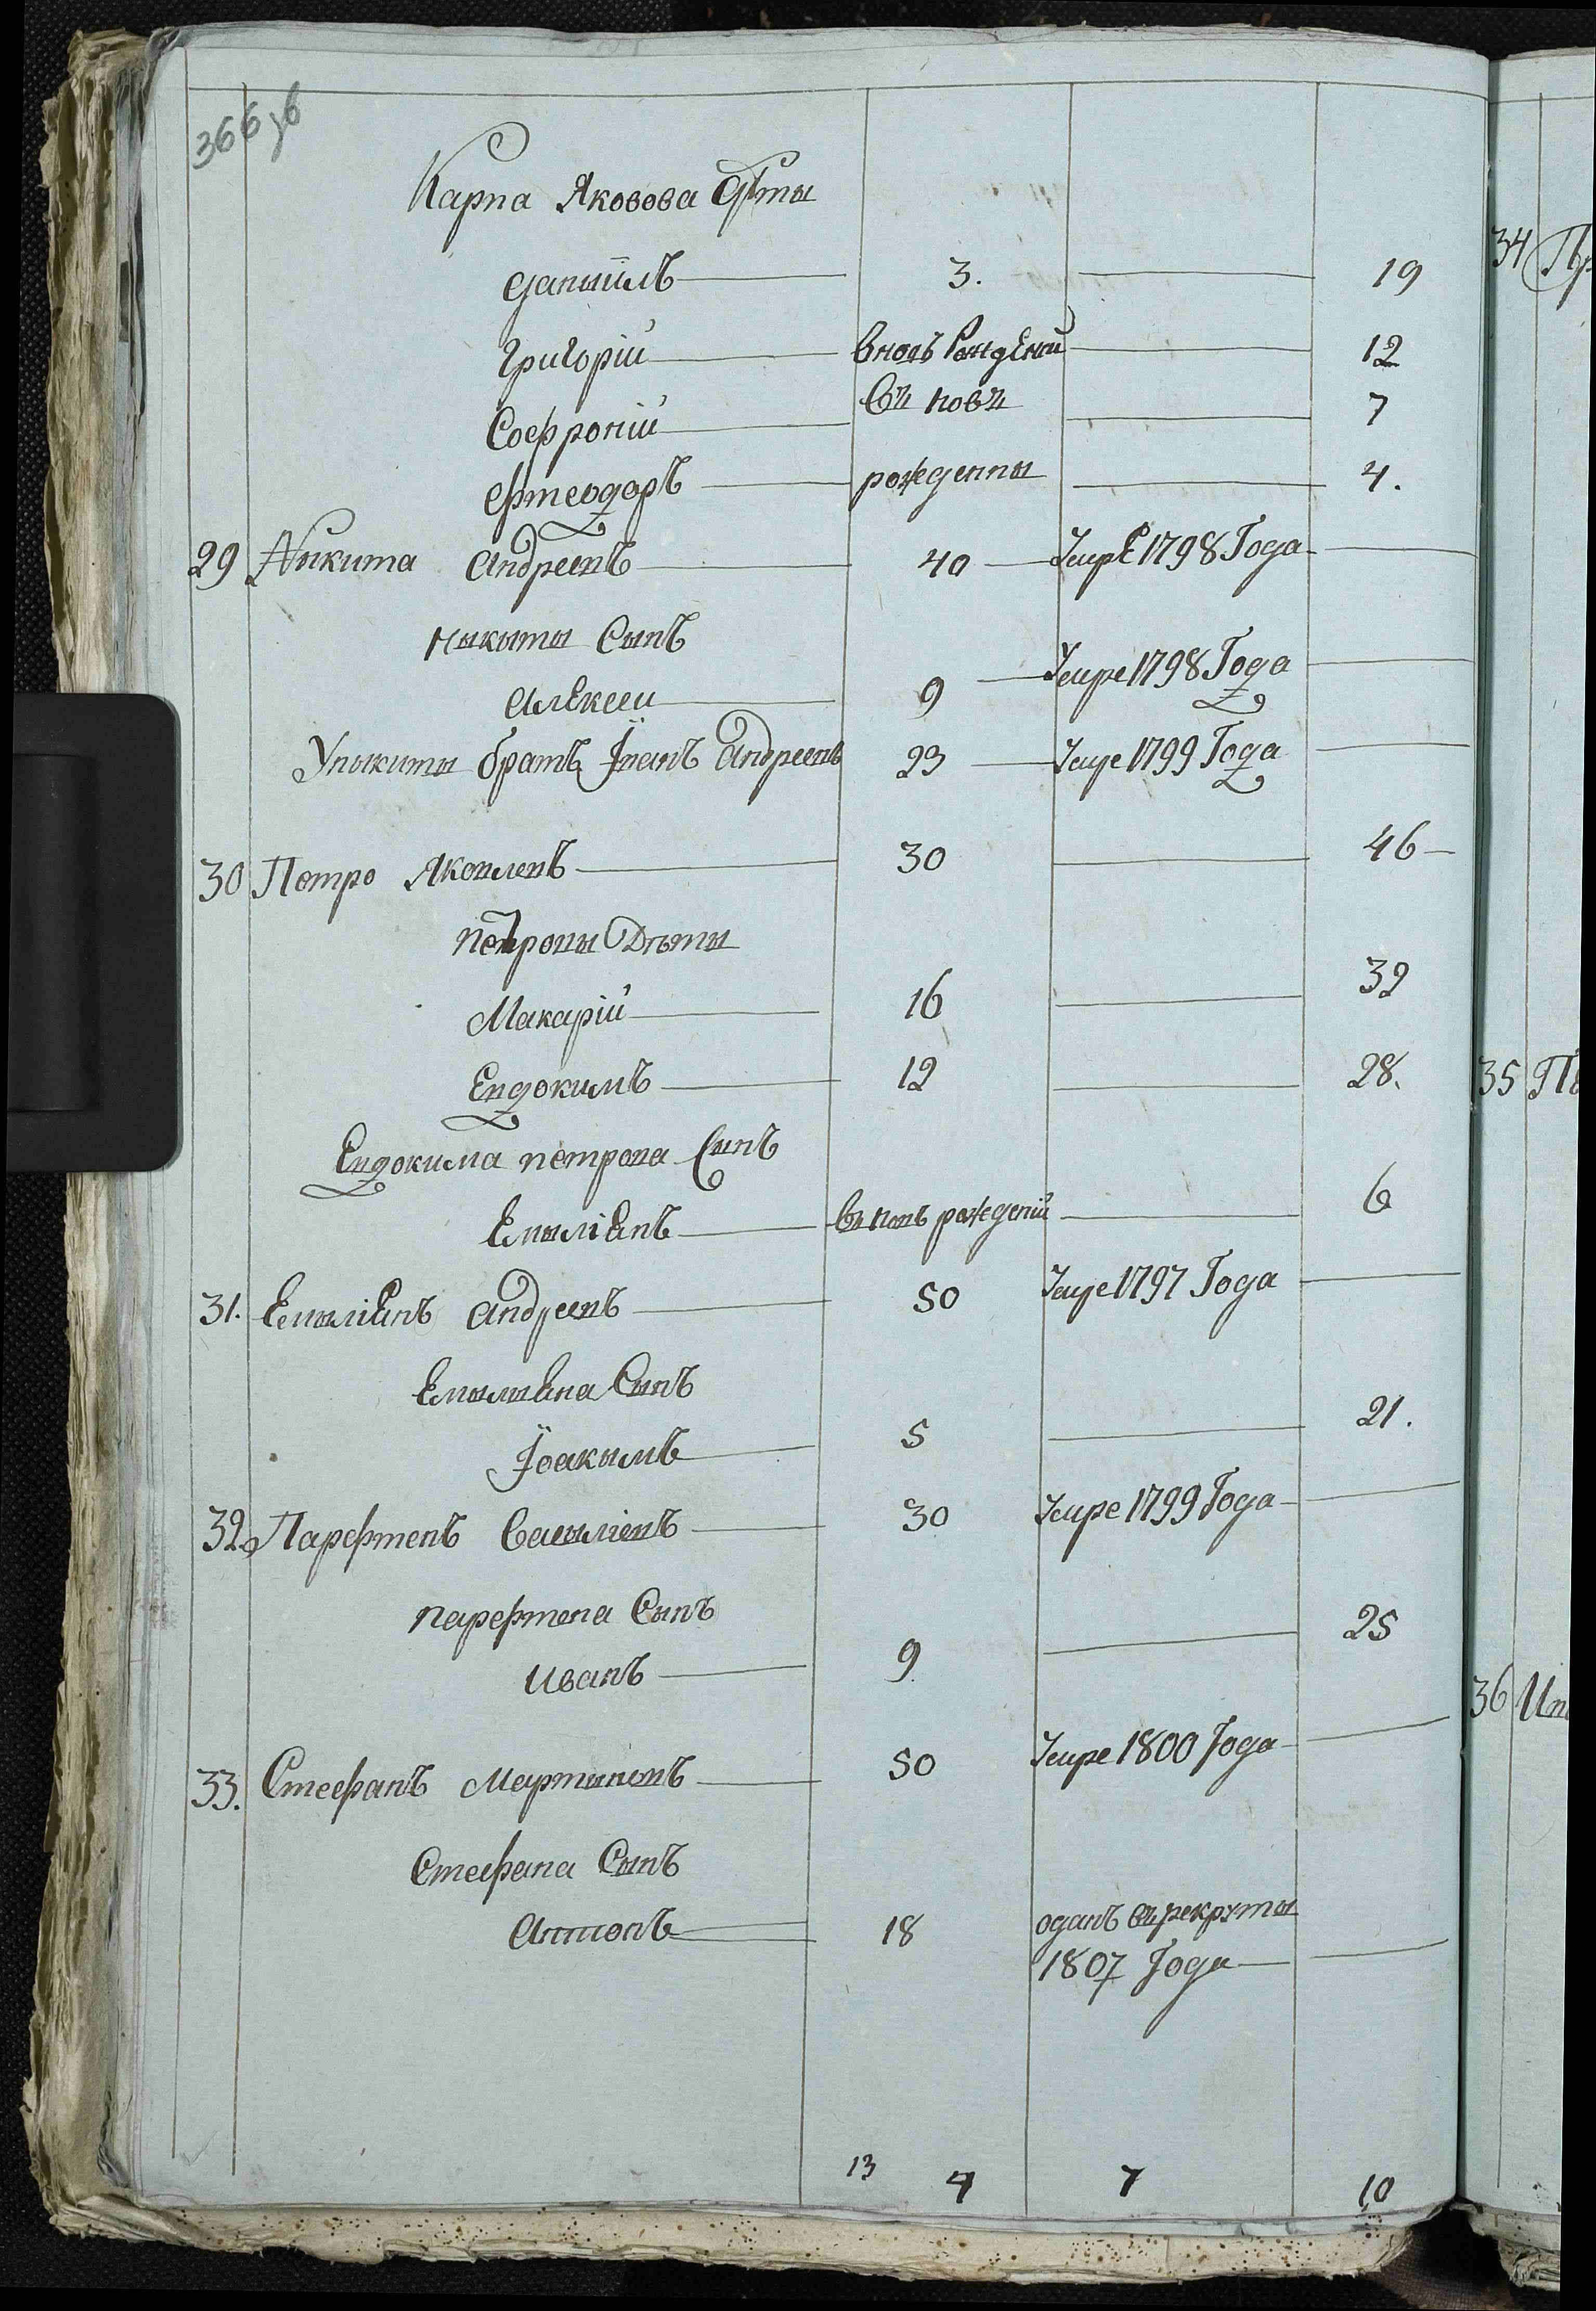 366 зв
Карпа Яковова Дѣты
Даныилъ 3. 19
Григорій вновь Рожденій 12
Софроній въ новъ 7
Фтеодоръ рожденны 4.
29 Никита Андреевъ 40 Умре 1798 Года
Ныкыты Сынъ
Алексеи 9 Умре 1798 Года
Уныкиты братъ Іванъ Андреевъ 23 Умре 1799 Года
30 Петро Яковлевъ 30 46
Петровы Дѣты
Макарій 16 32
Евдокимъ 12 28.
Евдокима петрова Сынъ
Емыліенъ въ новь рожденій 6
31. Емыліенъ Андреевъ 50 Умре 1797 Года
Емылыена Сынъ
Іоакымъ 5 21.
32 Парефтенъ Васыліевъ 30 Умре 1799 Года
парефтена Сынъ
Иванъ 9 25
33. Стефанъ Мартыновъ 50 Умре 1800 Года
Стефана Сынъ
Антонъ 18 оданъ въ рекруты
1807 Года
13 4 7 10
34 Пр
35 П
36 Ив